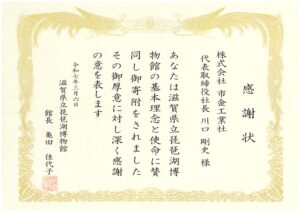 感謝状
株式会社 市金工業社
代表取締役社長 川口 剛史 様
あなたは滋賀県立琵琶湖博
物館の基本理念と使命に賛
同し御寄附をされました
その御厚意に対し深く感謝
の意を表します
令和七年三月六日
滋賀県立琵琶湖博物館
館長 亀田 佳代子